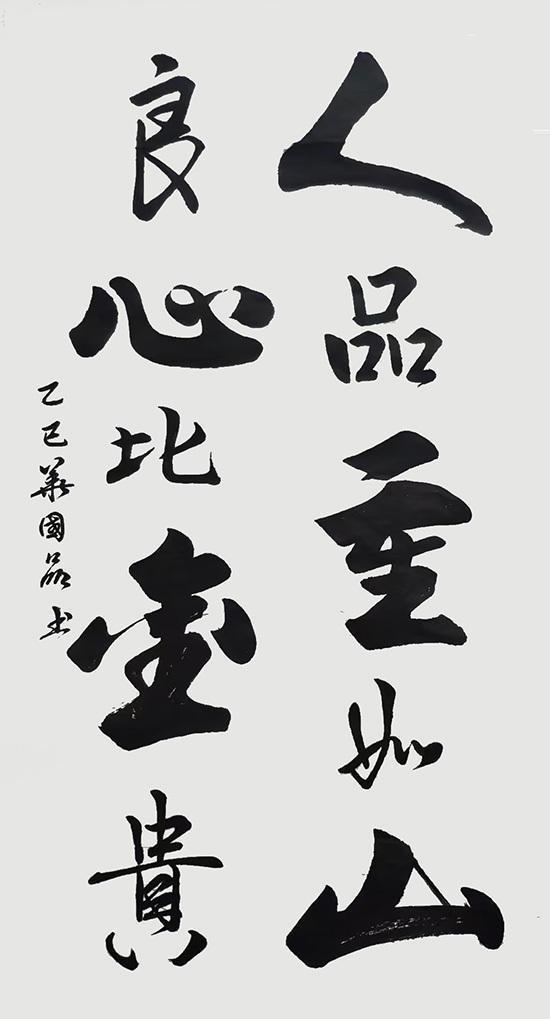 人品重如山
良心比金貴
乙巳華國品书